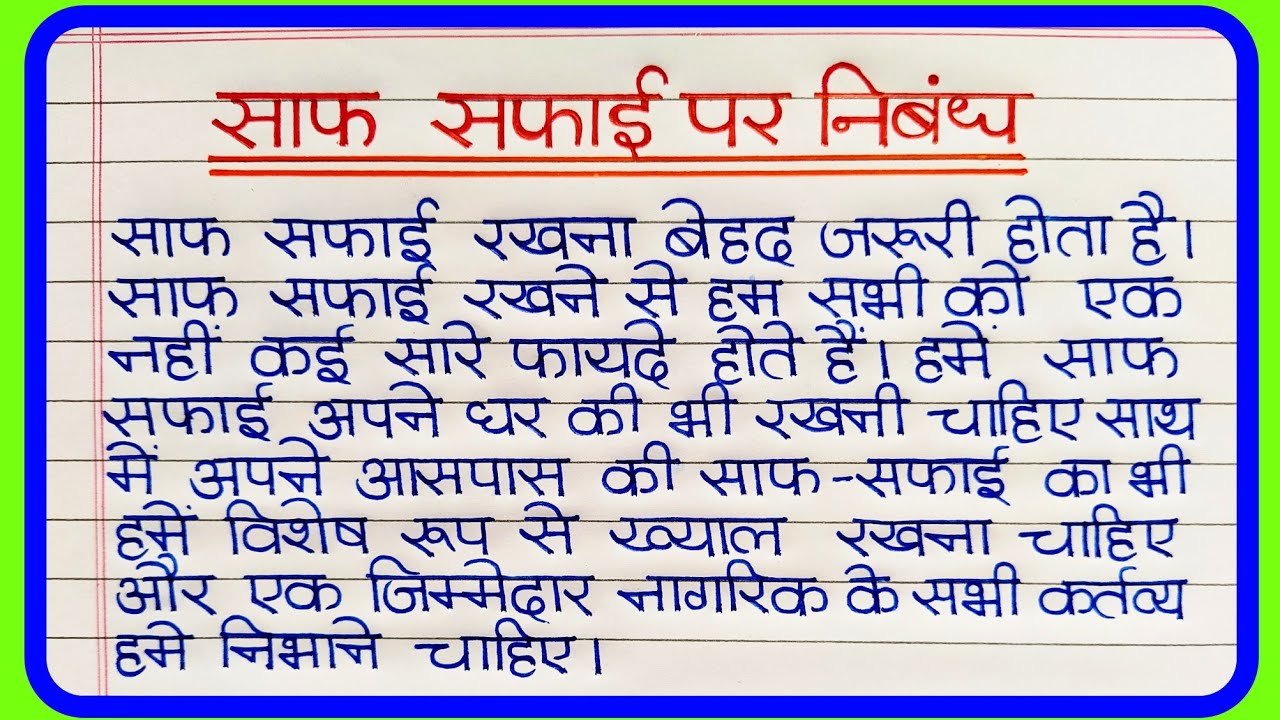 साफ सफाई पर निबंध
साफ सफाई रखना बेहद जरूरी होता है।
साफ सफाई रखने से हम सभी को एक
नहीं कई सारे फायदे होते हैं। हमें साफ
सफाई अपने घर की भी रखनी चाहिए साथ
में अपने आसपास की साफ-सफाई का भी
हमें विशेष रूप से ख्याल रखना चाहिए
और एक जिम्मेदार नागरिक के सभी कर्तव्य
हमे निभाने चाहिए।